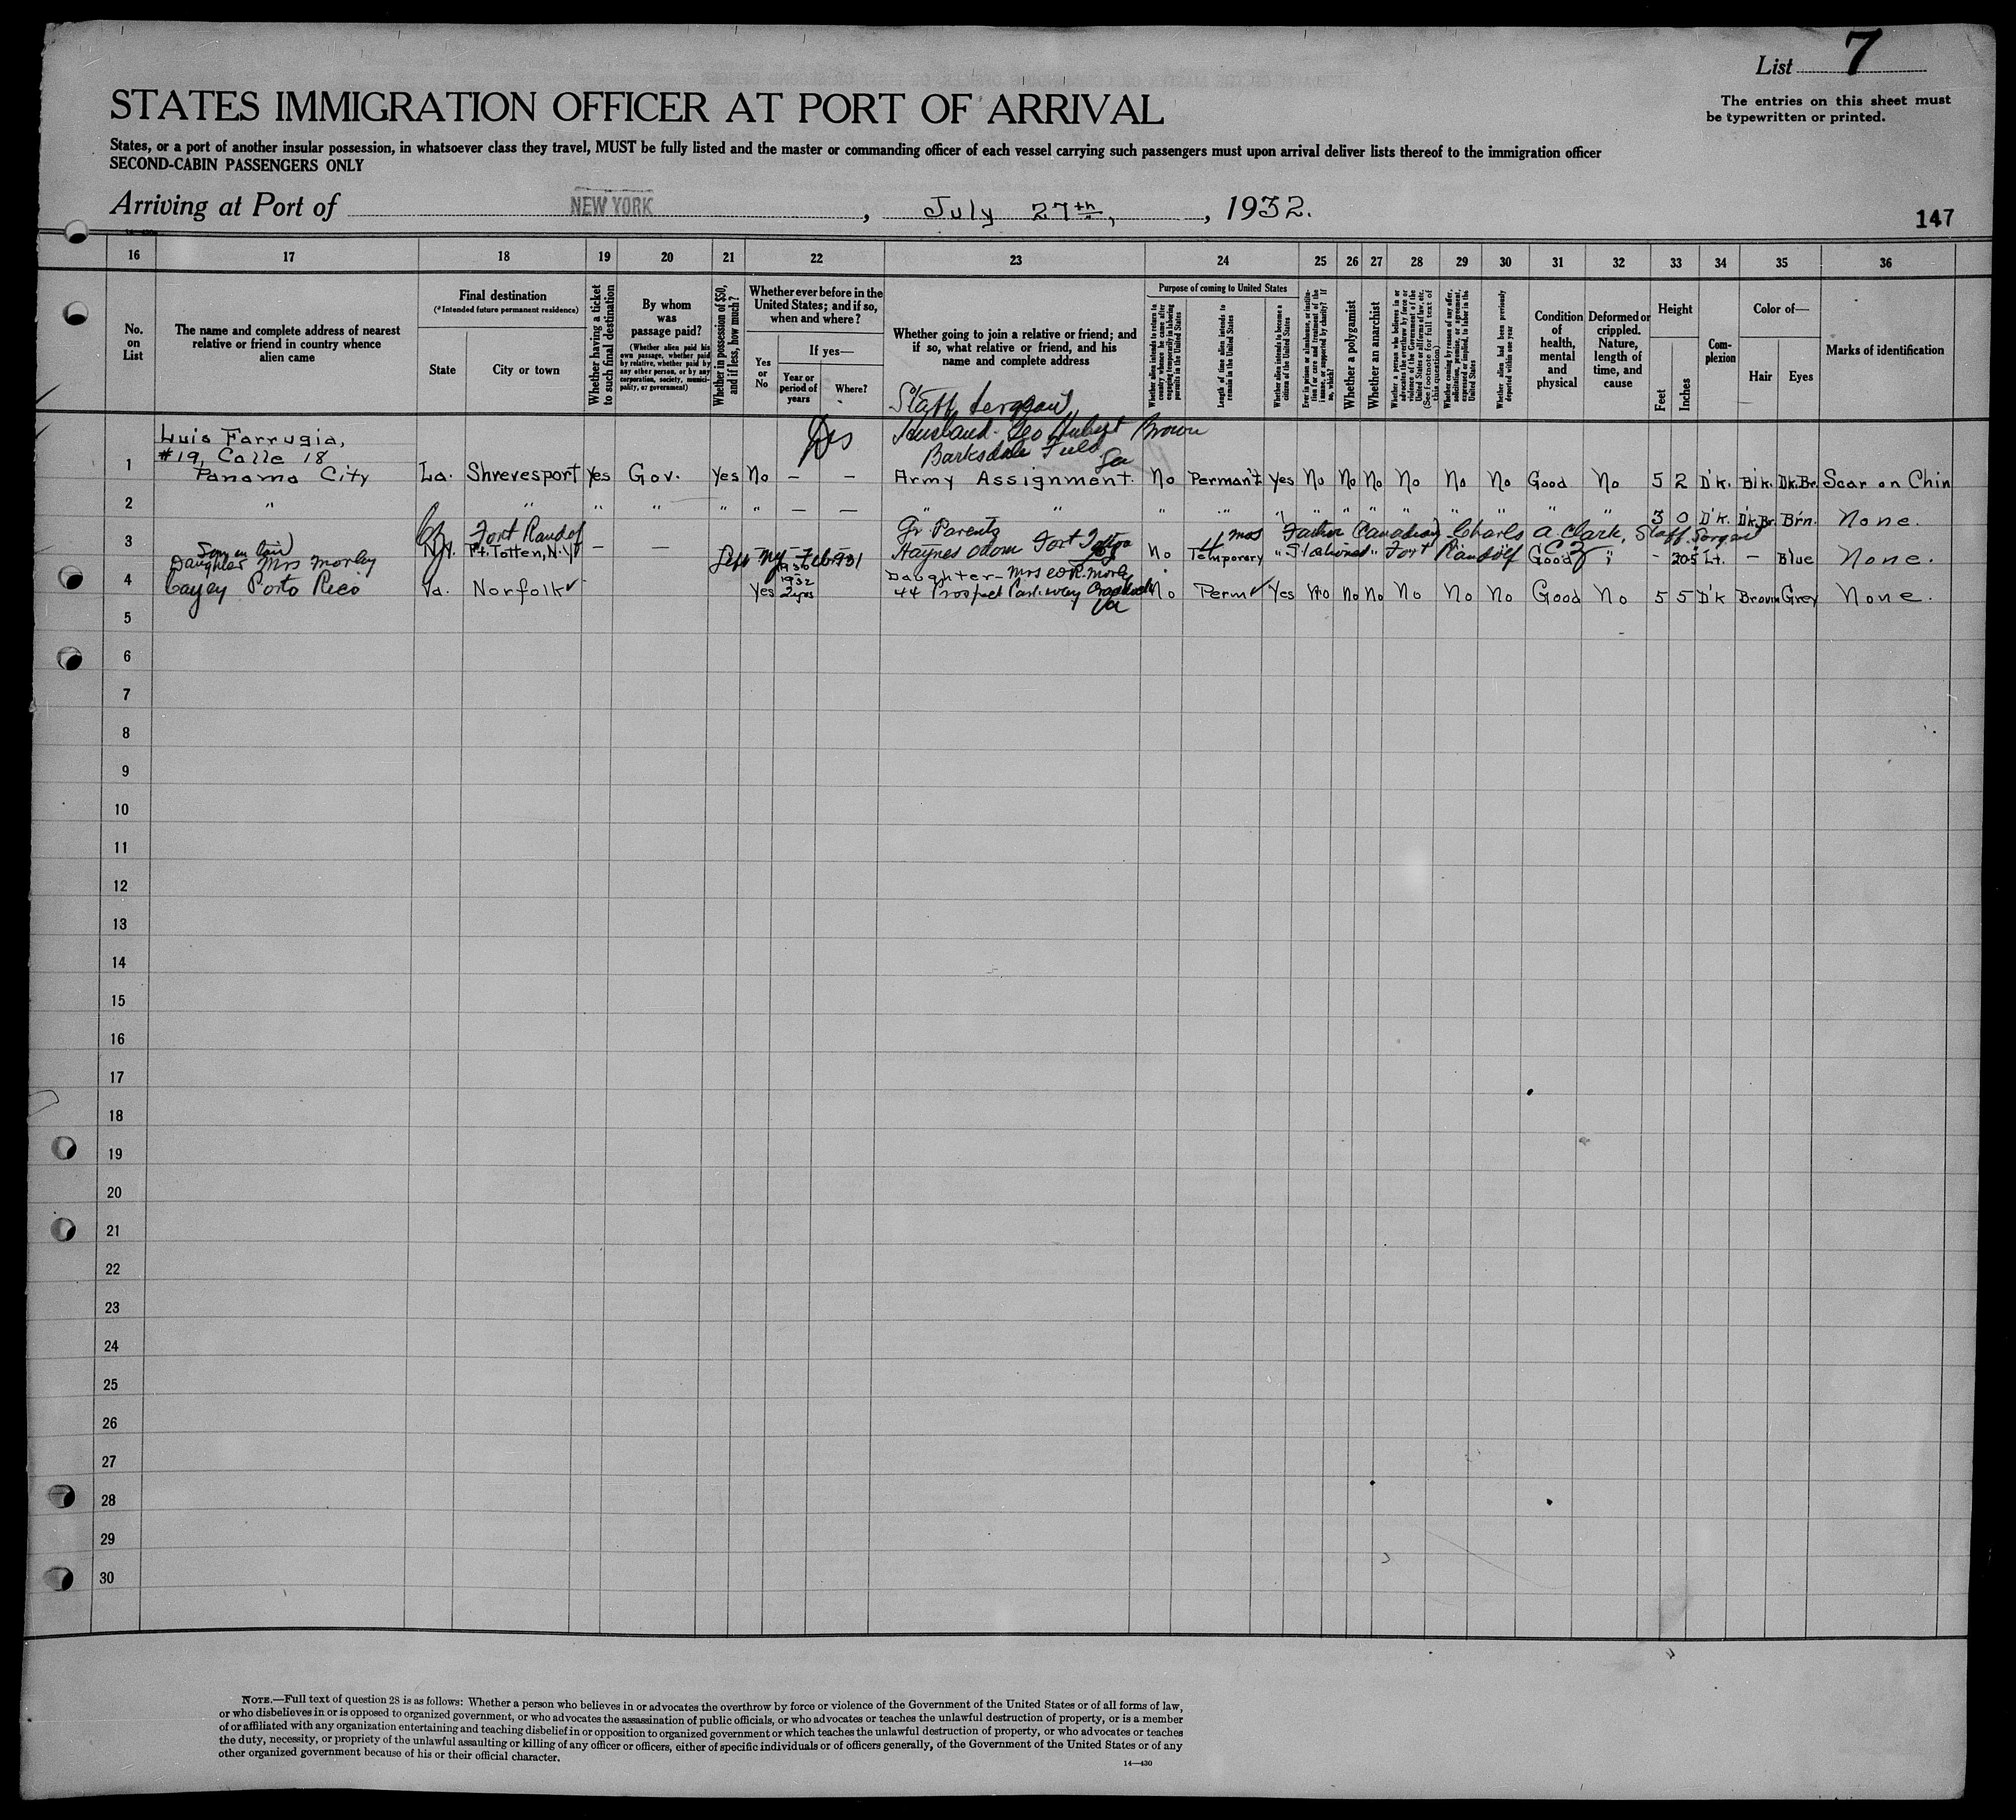 List 7
The entries on this sheet must
be typewritten or printed.
STATES IMMIGRATION OFFICER AT PORT OF ARRIVAL
States, or a port of another insular possession, in whatsoever class they travel, MUST be fully listed and the master or commanding officer of each vessel carrying such passengers must upon arrival deliver lists thereof to the immigration officer
SECOND-CABIN PASSENGERS ONLY
Arriving at Port of NEW YORK, July 27th, 1932.
147
16 17 18 19 20 21 22 23 24 25 26 27 28 29 30 31 32 33 34 35 36
No. on List
The name and complete address of nearest
relative or friend in country whence
alien came
Final destination
(*Intended future permanent residence)
State
City or town
Whether having a ticket
to such final destination
By whom
was
passage paid?
(Whether alien paid his
own passage, whether paid
by relative, whether paid by
any other person, or by any
corporation, society, munici-
pality, or government)
Whether in possession of $50,
and if less, how much?
Whether ever before in the
United States; and if so,
when and where?
Yes
or
No
If yes—
Year or
period of
years
Where?
Whether going to join a relative or friend; and
if so, what relative or friend, and his
name and complete address
Purpose of coming to United States
Whether alien intends to return to
country whence he came after
engaging temporarily in laboring
pursuits in the United States
Length of time alien intends to
remain in the United States
Whether alien intends to become a
citizen of the United States
Ever in prison or almshouse, or institu-
tion for care and treatment of the
insane, or supported by charity? If
so, which?
Whether a polygamist
Whether an anarchist
Whether a person who believes in or
advocates the overthrow by force or
violence of the Government of the
United States or all forms of law, etc.
(See footnote for full text of
this question)
Whether coming by reason of any offer,
solicitation, promise, or agreement,
expressed or implied, to labor in the
United States
Whether alien had been previously
deported within one year
Condition
of
health,
mental
and
physical
Deformed or
crippled.
Nature,
length of
time, and
cause
Height
Feet
Inches
Com-
plexion
Color of—
Hair
Eyes
Marks of identification
Staff Sergeant
Luis Farrugia,
#19, Calle 18
Husband - Geo Hubert Brown
Barksdale Field
La
1 Panama City La. Shrevesport Yes Gov. Yes No — — Army Assignment. No Perman't Yes No No No No No No Good No 5 2 D'k. Bl'k. Dk.Br. Scar on Chin
2 " " " " " " — — " " " " " " " " " " " " 3 0 D'k. D'k.Br. Br'n. None.
Cz Fort Randolf Gr Parents 11 mos Father (Canadian) Charles A. Clark, Staff Sergeant
3 N.Y. Ft. Totten, N.Y. — — Haynes Odom Fort Totten No Temporary Stationed Fort Randolf CZ Good " - 20.5 Lt. — Blue None.
Son in law
Daughter Mrs Morley 1932 Daughter - Mrs W.R. Morley
4 Cayey Porto Rico Va. Norfolk Yes 2 yrs 44 Prospect Parkway Va No Perm Yes No No No No No No Good No 5 5 D'k Brown Grey None.
5
6
7
8
9
10
11
12
13
14
15
16
17
18
19
20
21
22
23
24
25
26
27
28
29
30
NOTE.—Full text of question 28 is as follows: Whether a person who believes in or advocates the overthrow by force or violence of the Government of the United States or of all forms of law,
or who disbelieves in or is opposed to organized government, or who advocates the assassination of public officials, or who advocates or teaches the unlawful destruction of property, or is a member
of or affiliated with any organization entertaining and teaching disbelief in or opposition to organized government or which teaches the unlawful destruction of property, or who advocates or teaches
the duty, necessity, or propriety of the unlawful assaulting or killing of any officer or officers, either of specific individuals or of officers generally, of the Government of the United States or of any
other organized government because of his or their official character.
14—430